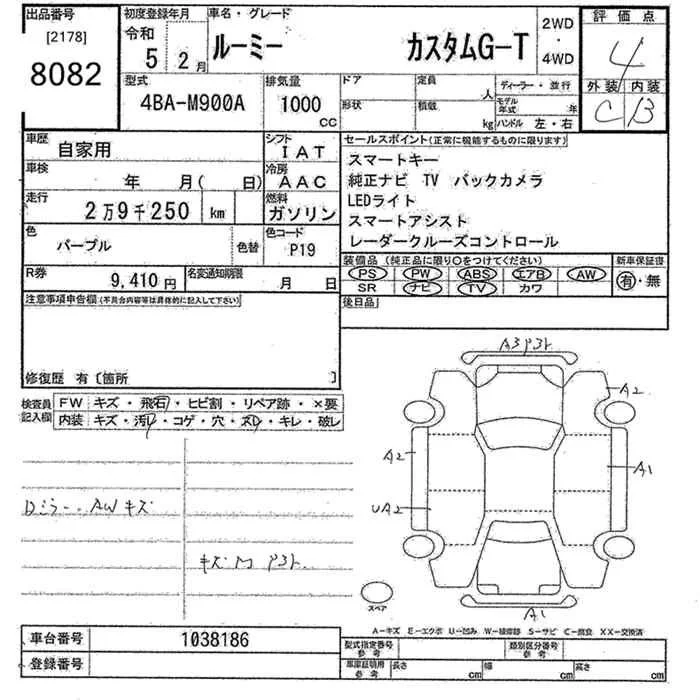 出品番号
[2178]
8082
初度登録年月
令和
5 2月
車名・グレード
ルーミー カスタムG-T
2WD
・
4WD
評価点
4
外装 内装
C B
型式
4BA-M900A
排気量
1000
CC
ドア
形状
定員
人
積載
kg
ディーラー・並行
モデル年式 年
ハンドル 左・右
車歴
自家用
シフト
IAT
車検
年 月( 日)
冷房
AAC
走行
2万9千250 km
燃料
ガソリン
色
パープル
色替
色コード
P19
R券
9,410円
名変通知期限
月 日
セールスポイント(正常に機能するものに限ります)
スマートキー
純正ナビ TV バックカメラ
LEDライト
スマートアシスト
レーダークルーズコントロール
装備品 (純正品に限り○をつけてください)
新車保証書
PS PW ABS エアB AW
SR ナビ TV カワ
有・無
後日品
注意事項申告欄(不具合内容等は具体的に記入して下さい)
修復歴 有〔箇所 〕
検査員記入欄
FW キズ・飛石・ヒビ割・リペア跡・×要
内装 キズ・汚レ・コゲ・穴・スレ・キレ・破レ
Dミラー、AWキズ
A3 P3ト
A2
A2
A1
UA2
A1
スペア
A-キズ E-エクボ U-凹み W-補修跡 S-サビ C-腐食 XX-交換済
車台番号
1038186
登録番号
型式指定番号
参考
類別区分番号
参考
車庫証明用
参考
長さ cm 幅 cm 高さ cm